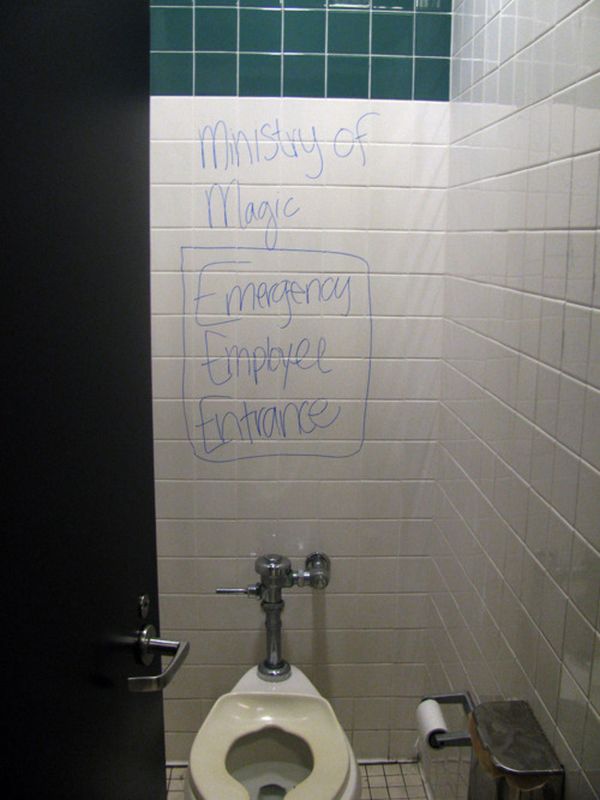 Ministry of
Magic
Emergency
Employee
Entrance